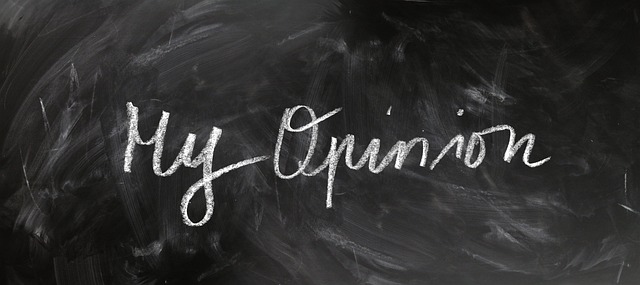 My Opinion